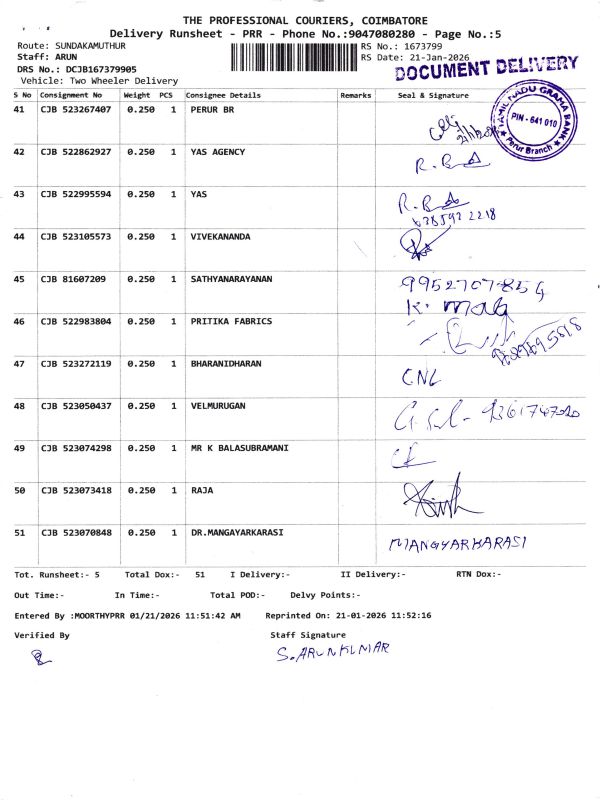 THE PROFESSIONAL COURIERS, COIMBATORE
Delivery Runsheet - PRR - Phone No.:9047080280 - Page No.:5
Route: SUNDAKAMUTHUR
RS No.: 1673799
Staff: ARUN
RS Date: 21-Jan-2026
DRS No.: DCJB167379905
DOCUMENT DELIVERY
Vehicle: Two Wheeler Delivery
S No Consignment No Weight PCS Consignee Details Remarks Seal & Signature
41 CJB 523267407 0.250 1 PERUR BR
TAMIL NADU GRAMA BANK
PIN - 641 010
Perur Branch
42 CJB 522862927 0.250 1 YAS AGENCY
43 CJB 522995594 0.250 1 YAS
44 CJB 523105573 0.250 1 VIVEKANANDA
45 CJB 81607209 0.250 1 SATHYANARAYANAN
46 CJB 522983804 0.250 1 PRITIKA FABRICS
47 CJB 523272119 0.250 1 BHARANIDHARAN
48 CJB 523050437 0.250 1 VELMURUGAN
49 CJB 523074298 0.250 1 MR K BALASUBRAMANI
50 CJB 523073418 0.250 1 RAJA
51 CJB 523070848 0.250 1 DR.MANGAYARKARASI MANGYARKARASI
Tot. Runsheet:- 5 Total Dox:- 51 I Delivery:- II Delivery:- RTN Dox:-
Out Time:- In Time:- Total POD:- Delvy Points:-
Entered By :MOORTHYPRR 01/21/2026 11:51:42 AM Reprinted On: 21-01-2026 11:52:16
Verified By Staff Signature
S. ARUNKUMAR